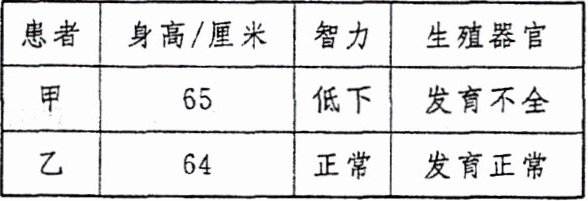 患者 身高/厘米 智力 生殖器官
甲 65 低下 发育不全
乙 64 正常 发育正常